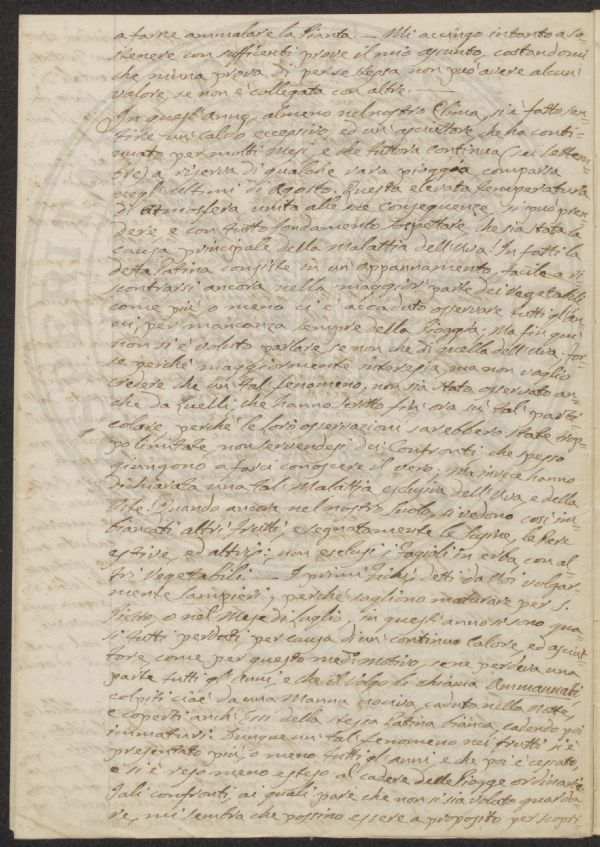 a farne ammalare la Pianta. — Mi accingo intanto a so
stenere con sufficenti prove il mio assunto, costandomi
che niuna prova di per se stessa non può avere alcun
valore, se non è collegata con altre. —
In quest'Anno, almeno nel nostro Clima, si è fatto sen-
tire un calore eccessivo, ed un asciuttore, che ha conti-
nuato per molti Mesi, e che tuttora continua (sei Settem-
bre) a riserva di qualche rara pioggia comparsa
negli ultimi di Agosto. Questa elevata temperatura
di Atmosfera unita alle sue conseguenze, si può pren-
dere e con tutto fondamento sospettare che sia stata la
causa principale della Malattia dell'Uva! In fatti la
detta Patina consiste in un'appannamento, facile a ri
scontrarsi ancora nella maggior parte dei Vegetabili
come più o meno ci è accaduto osservare tutti gl'an-
ni, per mancanza sempre della Pioggia; Ma fin qui
non si è voluto parlare se non che di quella dell'Uva, for-
se perché maggiormente interessa, ma non voglio
credere che un tal fenomeno, non sia stato osservato an-
che da Quelli, che hanno scritto fin ora su tal parti
colare, perchè le Loro osservazioni sarebbero state trop-
po limitate, non servendosi dei Confronti che spesso
giungono a farci conoscere il vero; Ma invece hanno
dichiarata una tal Malattia esclusiva dell'Uva e della
Vite! Quando ancora nel nostro Suolo, si vedono così im-
biancati altri frutti, e segnatamente le Susine, le Pere
estive, ed altri; non esclusi i Fagioli in erba, con al-
tri Vegetabili. — I primi Fichi, detti da Noi volgar-
mente Sampieri, perchè sogliono maturare per S.
Pietro, o nel Mese di Luglio, in quest'anno si sono qua-
si tutti perduti per causa di un continuo Calore, ed asciut-
tore, come per questo med.º motivo, se ne perdeva una
parte tutti gl'Anni, e che il Volgo li chiama Ammannati,
colpiti cioè da una Manna nociva, caduta nella Notte,
e coperti anch'Essi della stessa Patina bianca, cadendo poi
immaturi. Dunque un tal fenomeno nei frutti si è
presentato più, o meno tutti gl'anni, e che poi è cessato,
e si è reso meno esteso al cadere delle Piogge ordinarie.
Tali confronti, ai quali pare che non si sia voluto guarda-
re, mi sembra che possino essere a proposito per scopri-